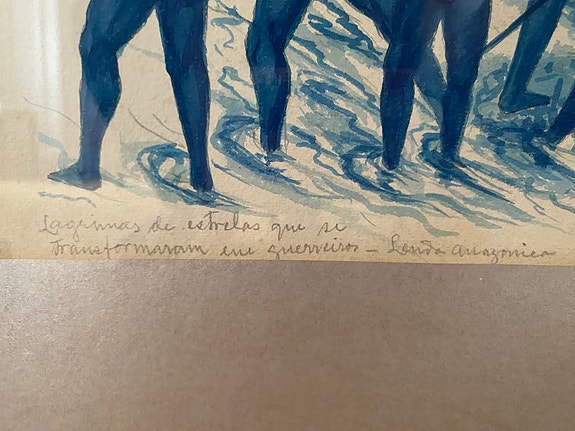 Lagrimas de estrelas que se
transformaram em guerreiros - Lenda amazonica